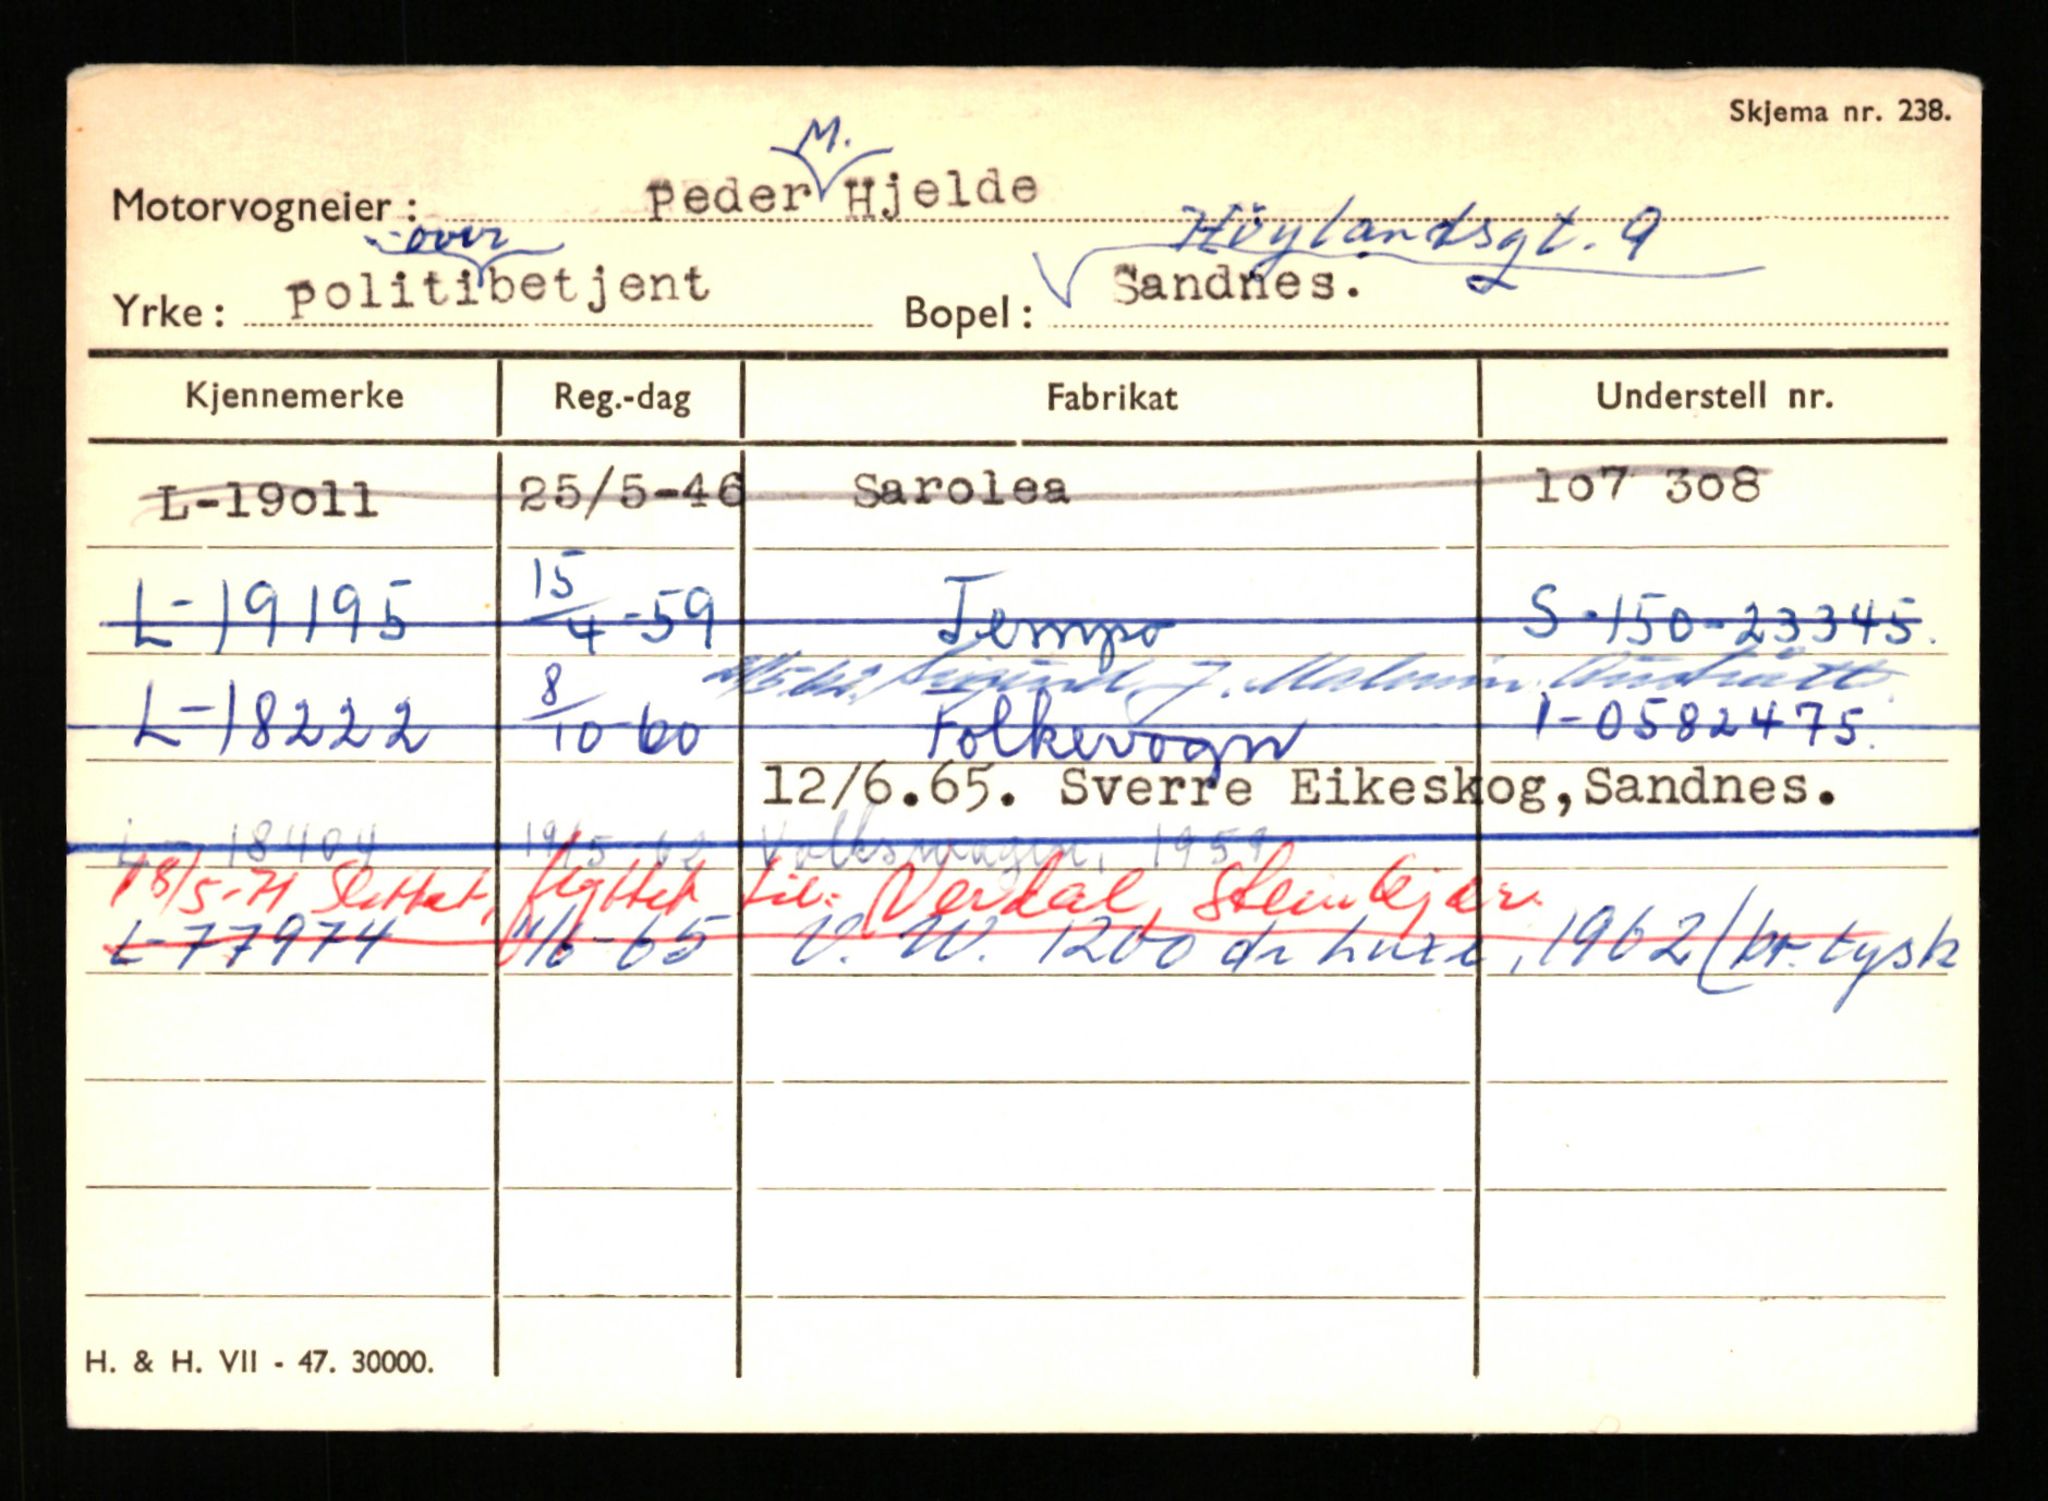 Skjema nr. 238.
M.
Motorvogneier: Peder Hjelde
over Höylandsgt. 9
Yrke: politibetjent Bopel: Sandnes.
Kjennemerke Reg.-dag Fabrikat Understell nr.
L-19011 25/5-46 Sarolea 107 308
L-19195 15/4-59 Tempo S-150-23345.
Sigurd J. Malmin
L-18222 8/10 60 Folkevogn 1-0582475.
12/6.65. Sverre Eikeskog, Sandnes.
L-18404 19/5-62 Volkswagen, 1959
18/5-71 Slettet, flyttet til: Verdal, Steinkjer.
L-77974 11/6-65 V.W. 1200 de luxe, 1962 (br. tysk
H. & H. VII - 47. 30000.